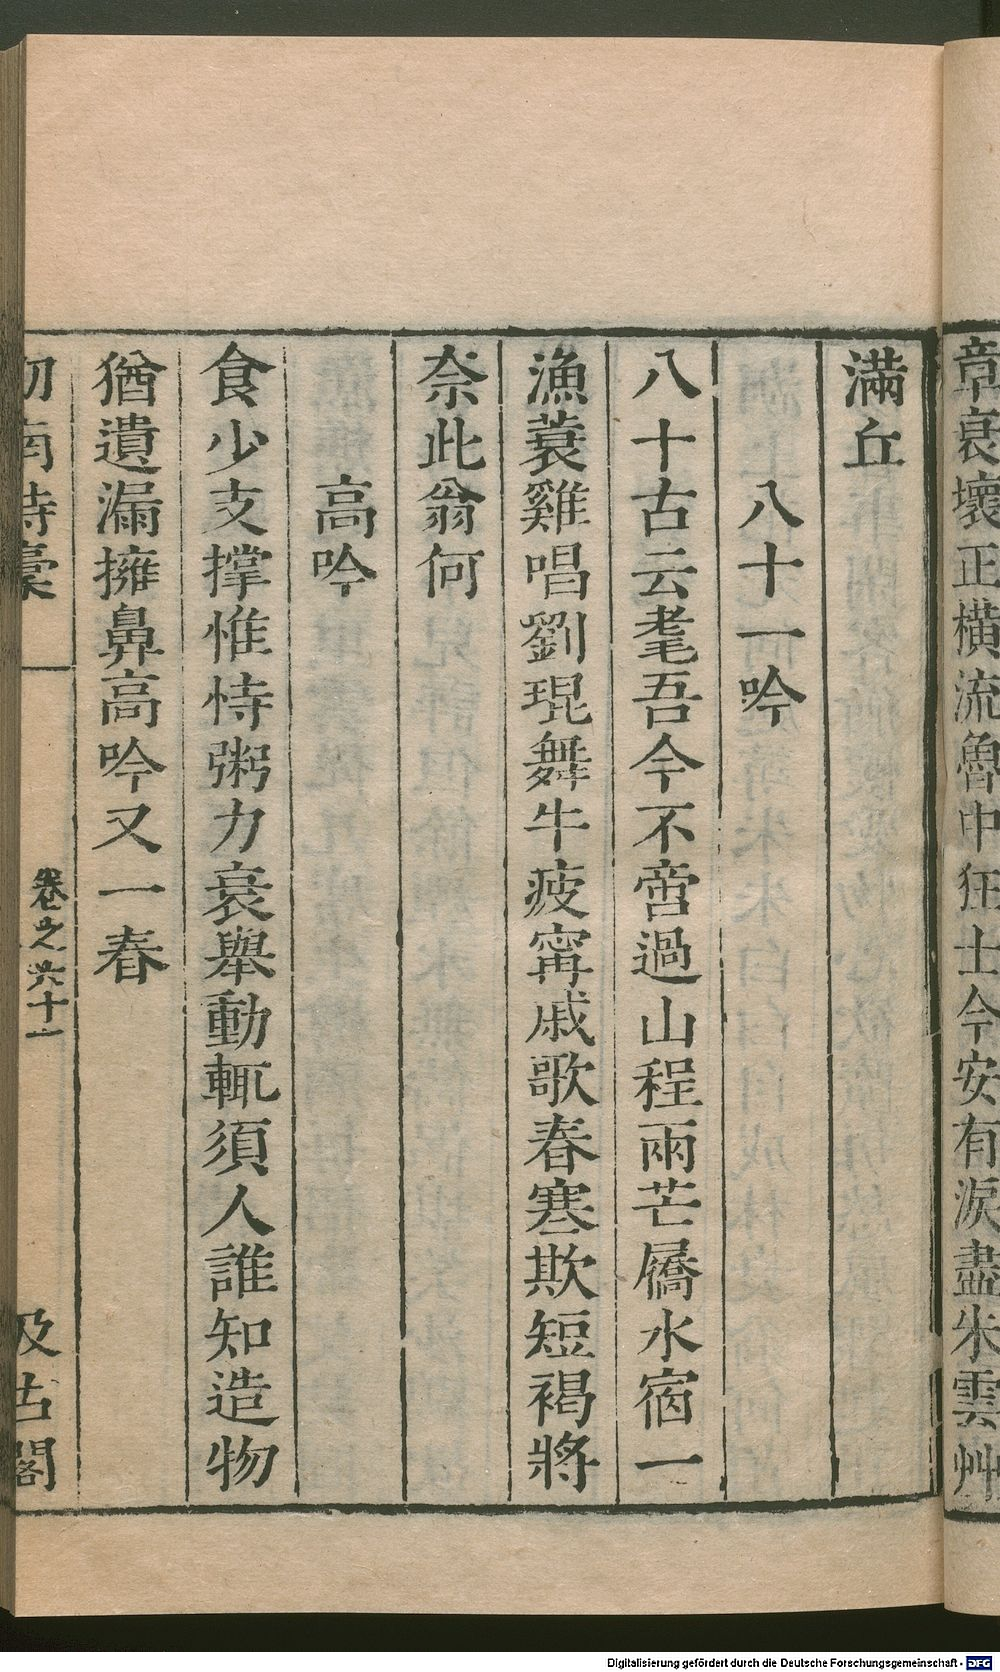 章哀壞正橫流魯中狂士今安有淚盡朱雲艸
滿丘
八十一吟
八十古云耄吾今不啻過山程兩芒屩水宿一
漁蓑雞唱劉琨舞牛疲甯戚歌春寒欺短褐將
奈此翁何
高吟
食少支撐惟恃粥力衰舉動輒須人誰知造物
猶遺漏擁鼻高吟又一春
劍南詩稾
卷之六十一
汲古閣
Digitalisierung gefördert durch die Deutsche Forschungsgemeinschaft - DFG